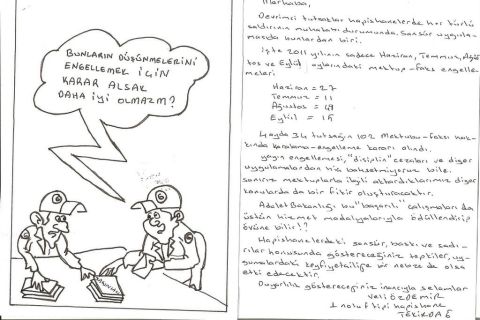 BUNLARIN DÜŞÜNMELERİNİ
ENGELLEMEK İÇİN
KARAR ALSAK
DAHA İYİ OLMAZMI?
Merhaba,
Devrimci tutsaklar hapishanelerde her türlü
saldırının muhatabı durumunda. Sansür uygula-
ması da bunlardan biri.
İşte 2011 yılının sadece Haziran, Temmuz, Ağus
tos ve Eylül aylarındaki mektup-faks engelle-
meleri
Haziran = 27
Temmuz = 11
Ağustos = 49
Eylül = 15
4 ayda 34 tutsağın 102 Mektubu-faksı hak-
kında karalama-engelleme kararı alındı.
Yayın engellemesi, "disiplin" cezaları ve diğer
uygulamalardan hiç bahsetmiyoruz bile.
Sanırız mektuplarla ilgili aktardıklarımız diğer
konularda da bir fikir oluşturacaktır.
Adalet Bakanlığı bu "başarılı" çalışmaları da
üstün hizmet madalyalarıyla ödüllendirip
övüne bilir!?
Hapishanelerdeki sansür, baskı ve saldı-
rılar konusunda göstereceğiniz tepkiler, uy-
gulamalardaki keyfiyetçiliğe bir nebze de olsa
etki edecektir.
Duyarlılık göstereceğiniz inancıyla selamlar
Veli ÖZDEMİR
1 nolu F tipi hapishane
TEKİRDAĞ